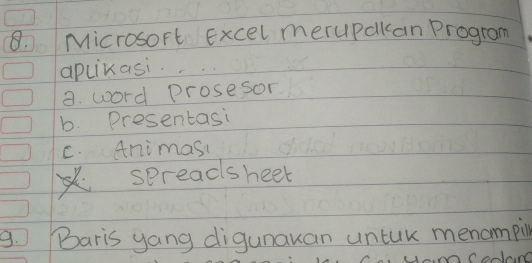 8. Microsoft Excel merupakan Program
aplikasi.....
a. Word Prosesor
b. Presentasi
c. Animasi
d. Spreadsheet
9. Baris yang digunakan untuk menampil